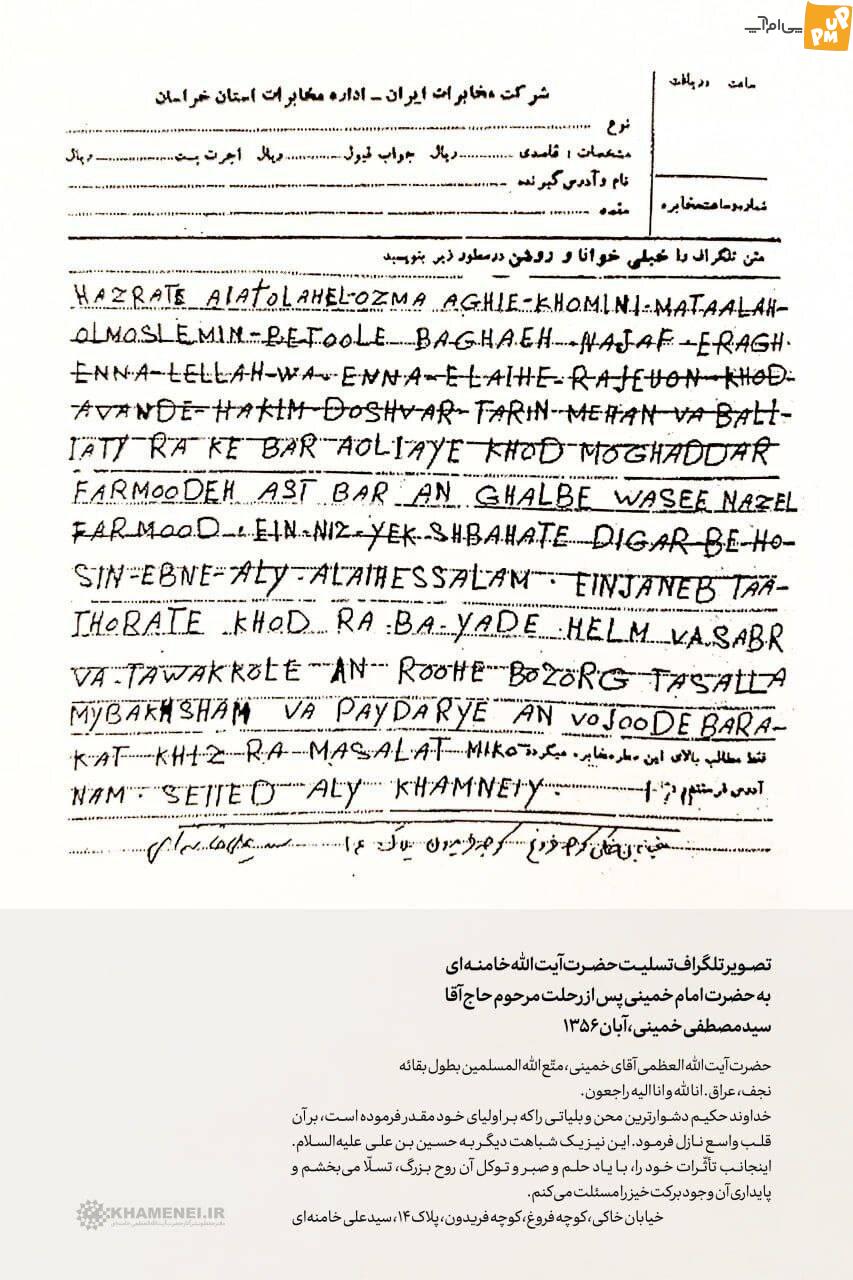 پی‌ام‌آپ
PMUP
شرکت مخابرات ایران - اداره مخابرات استان خراسان
ساعت دریافت
نوع
مشخصات : قاصدی ریال جواب قبول ریال اجرت پست ریال
نام و آدرس گیرنده
شماره و ساعت مخابره
مقصد
متن تلگراف را خیلی خوانا و روشن در سطور زیر بنویسید
HAZRATE AIATOLAHEL-OZMA AGHIE-KHOMINI-MATAALAH-
OLMOSLEMIN-BETOOLE BAGHAEH-NAJAF-ERAGH.
ENNA-LELLAH-WA-ENNA-ELAIHE-RAJEUON-KHOD-
AVANDE-HAKIM-DOSHVAR-TARIN-MEHAN VA BALI-
IATY RA KE BAR AOLIAYE KHOD MOGHADDAR
FARMOODEH AST BAR AN GHALBE WASEE NAZEL
FARMOOD . EIN-NIZ-YEK SHBAHATE DIGAR BE-HO-
SIN-EBNE-ALY-ALAIHESSALAM . EINJANEB TAA-
THORATE KHOD RA BA-YADE HELM VA SABR
VA-TAWAKKOLE AN ROOHE BOZORG TASALLA
MYBAKHSHAM VA PAYDARYE AN VOJOODE BARA-
KAT-KHIZ RA MASALAT MIKO
فقط مطالب بالای این سطر مخابره میگردد
NAM . SEIIED ALY KHAMNEIY .
آدرس فرستنده
خیابان خاکی کوچه فروغ کوچه فریدون پلاک ۱۴
تصویر تلگراف تسلیت حضرت آیت‌الله خامنه‌ای
به حضرت امام خمینی پس از رحلت مرحوم حاج آقا
سید مصطفی خمینی، آبان ۱۳۵۶
حضرت آیت‌الله العظمی آقای خمینی، متّع الله المسلمین بطول بقائه
نجف، عراق. انا لله و انا الیه راجعون.
خداوند حکیم دشوارترین محن و بلیاتی را که بر اولیای خود مقدر فرموده است، بر آن
قلب واسع نازل فرمود. این نیز یک شباهت دیگر به حسین بن علی علیه‌السلام.
اینجانب تأثّرات خود را، با یاد حلم و صبر و توکل آن روح بزرگ، تسلّا می‌بخشم و
پایداری آن وجود برکت خیز را مسئلت می‌کنم.
خیابان خاکی، کوچه فروغ، کوچه فریدون، پلاک ۱۴، سید علی خامنه‌ای
KHAMENEI.IR